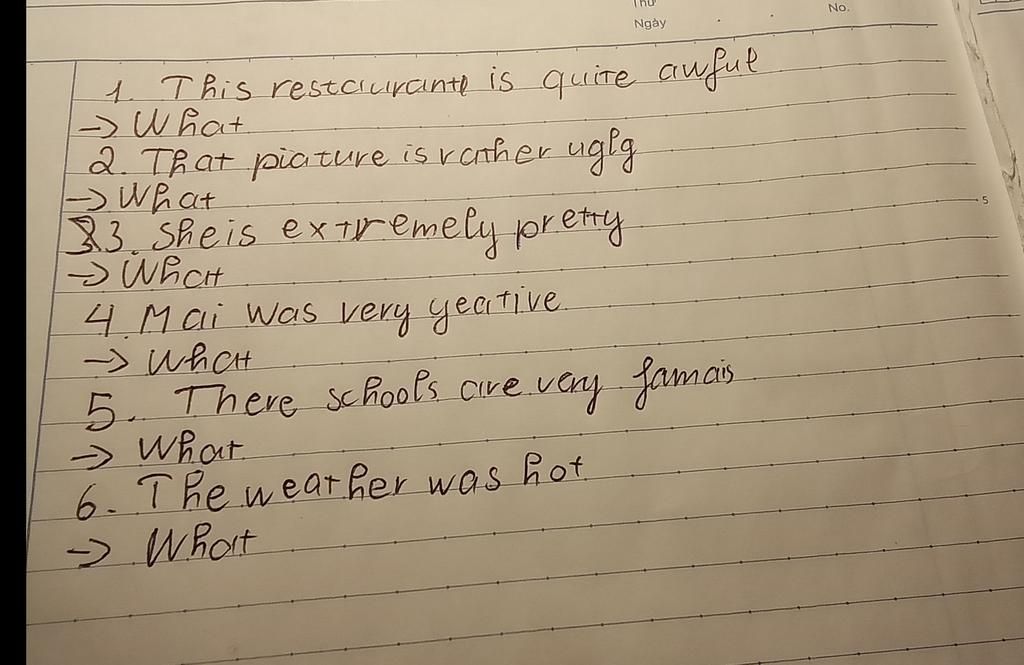 Thứ
Ngày
No.
1. This restaurante is quite awful
-> What
2. That piature is rather uglg
-> What
5
3. She is extremely pretty
-> What
4. Mai was very yeative
-> What
5. There schools are very famais
-> What
6. The weather was hot
-> What